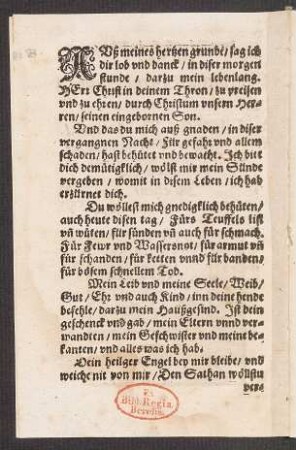 AVß meines hertzen grunde/ sag ich
dir lob vnd danck/ in diser morgen
stunde/ darzu mein lebenlang.
HErr Christ in deinem Thron/ zu preisen
vnd zu ehren/ durch Christum vnsern Her-
ren/ seinen eingebornen Son.
Vnd das du mich auß gnaden/ in diser
vergangnen Nacht/ Für gefahr vnd allem
schaden/ hast behütet vnd bewacht. Ich bitt
dich demütigklich/ wölst mir mein Sünde
vergeben/ womit in disem Leben/ ich hab
erzürnet dich.
Du wöllest mich gnedigklich behüten/
auch heute disen tag/ Fürs Teuffels list
vñ wüten/ für sünden vñ auch für schmach.
Für Fewr vnd Wassersnot/ für armut vñ
für schanden/ für ketten vnnd für banden/
für bösem schnellem Tod.
Mein Leib vnd meine Seele/ Weib/
Gut/ Ehr vnd auch Kind/ inn deine hende
befehle/ darzu mein Haußgesind. Ist dein
geschenck vnd gab/ mein Eltern vnnd ver-
wandten/ mein Geschwister vnd meine be-
kanten/ vnd alles was ich hab.
Dein heilger Engel bey mir bleibe/ vnd
weiche nit von mir/ Den Sathan wöllstu
ver-
Ex
Bibl. Regia
Berolin.